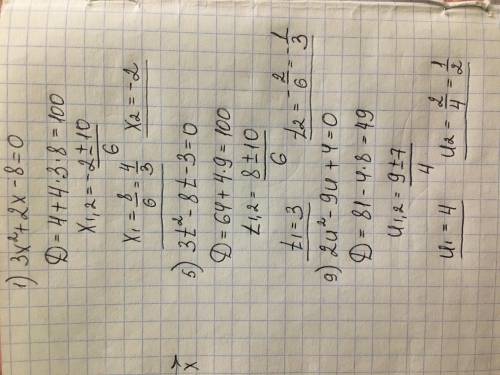 1) 3x² + 2x - 8 = 0
D = 4 + 4·3·8 = 100
x₁,₂ = (-2 ± 10)/6
x₁ = 8/6 = 4/3  x₂ = -2
5) 3t² - 8t - 3 = 0
D = 64 + 4·9 = 100
t₁,₂ = (8 ± 10)/6
t₁ = 3  t₂ = -2/6 = -1/3
9) 2u² - 9u + 4 = 0
D = 81 - 4·8 = 49
u₁,₂ = (9 ± 7)/4
u₁ = 4  u₂ = 2/4 = 1/2
x